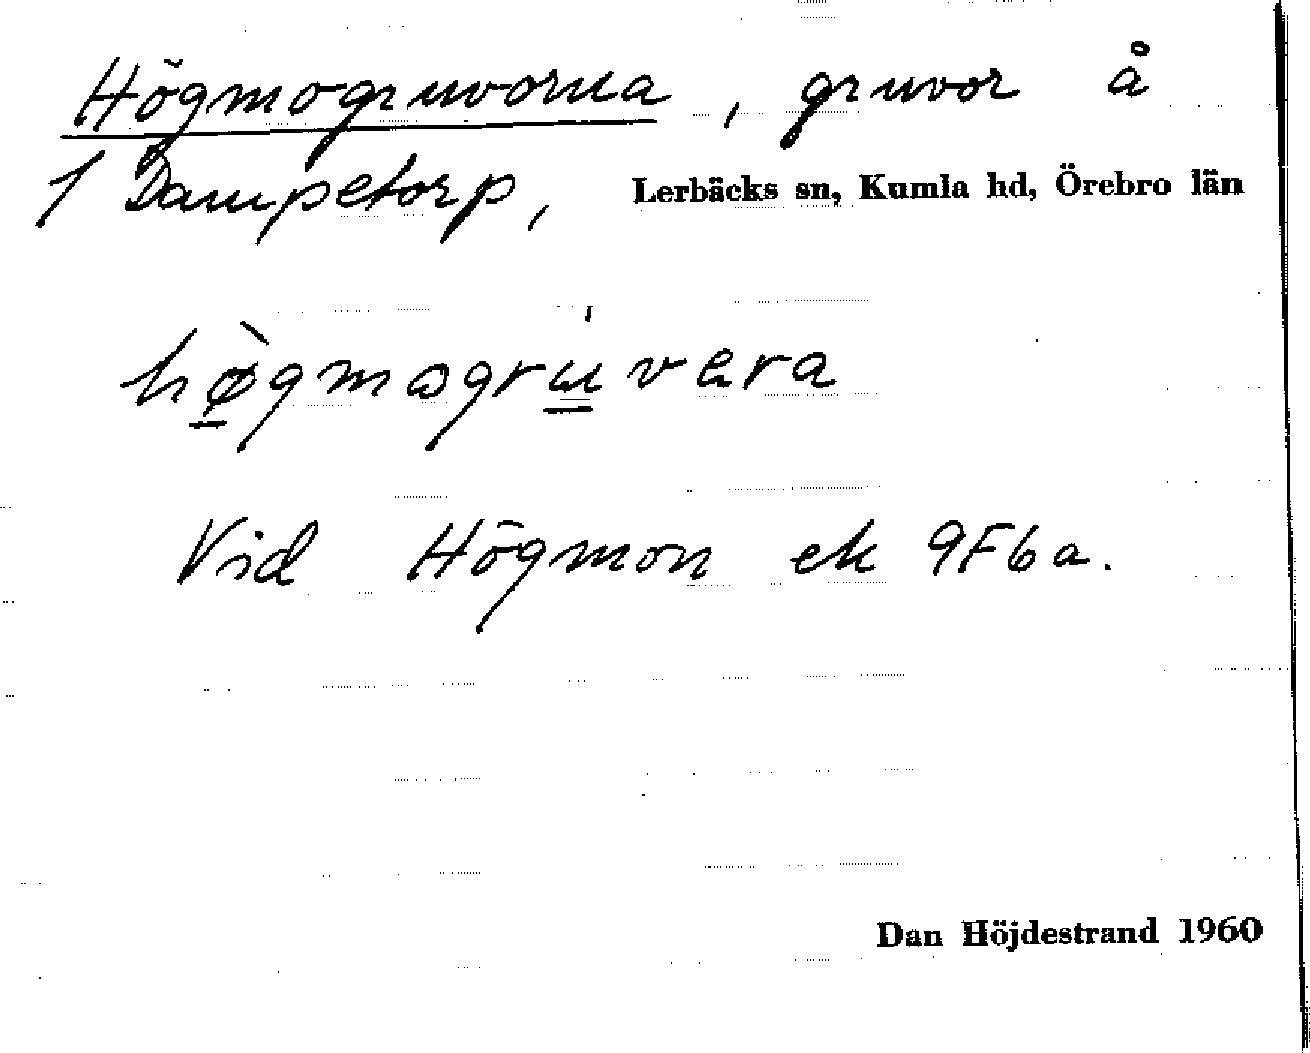 Högmogruvorna, gruvor å
1 Dampetorp, Lerbäcks sn, Kumla hd, Örebro län
hø̠̀gmogru̠̍vera
Vid Högmon ek 9F6a.
Dan Höjdestrand 1960